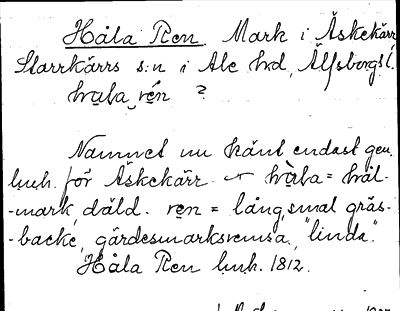 Håla Ren. Mark i Äskekärr
Starrkärrs s:n i Ale hrd, Älfsborgs l.
hɯla rén ?
Namnet nu känt endast gen.
lmh. för Äskekärr. hɯla = hål-
-mark, däld. ren = lång, smal gräs-
-backe, gärdesmarksremsa, "linda".
Håla Ren lmh. 1812.